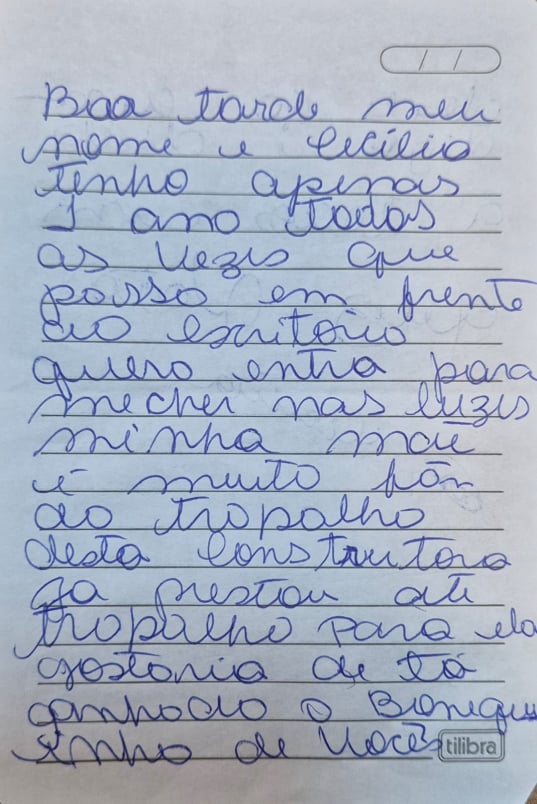 / /
Boa tarde meu
nome e Cecilia
tenho apenas
1 ano todas
as vezis que
posso em frente
ao escritorio
quero entra para
mecher nas luzis
minha mãe
é muito fãn
do tropalho
desta construtora
ja prestou até
tropalho para ela
gostaria de tá
ganhado o Bonequ
sinho de vocês
tilibra